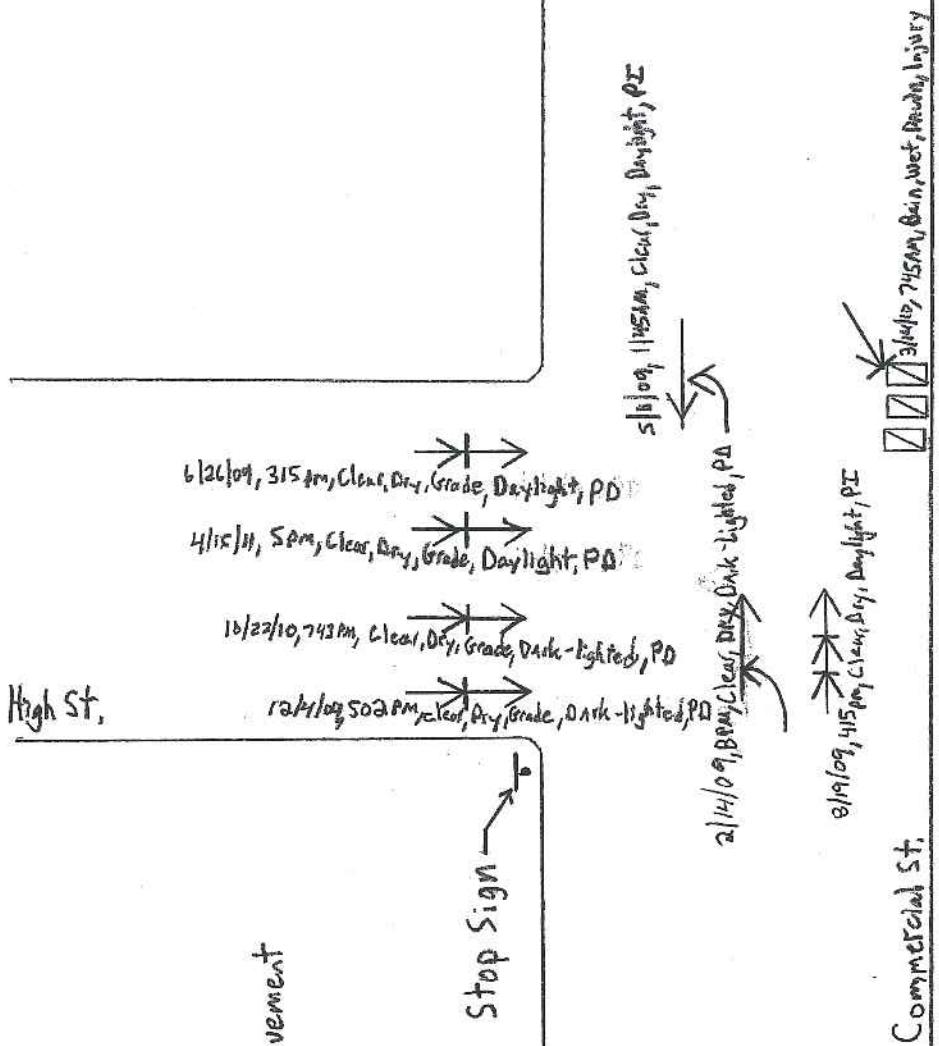 High St.
6/26/09, 315 pm, Clear, Dry, Grade, Daylight, PD
4/15/11, 5pm, Clear, Dry, Grade, Daylight, PD
10/22/10, 743 PM, Clear, Dry, Grade, Dark-lighted, PD
12/4/09, 502 PM, Clear, Dry, Grade, Dark-lighted, PD
vement
Stop Sign
5/8/09, 1145AM, Clear, Dry, Daylight, PI
2/14/09, 8PM, Clear, DRY, Dark-lighted, PD
8/19/09, 415 pm, Clear, Dry, Daylight, PI
745AM, Rain, Wet, Injury
Commercial St.